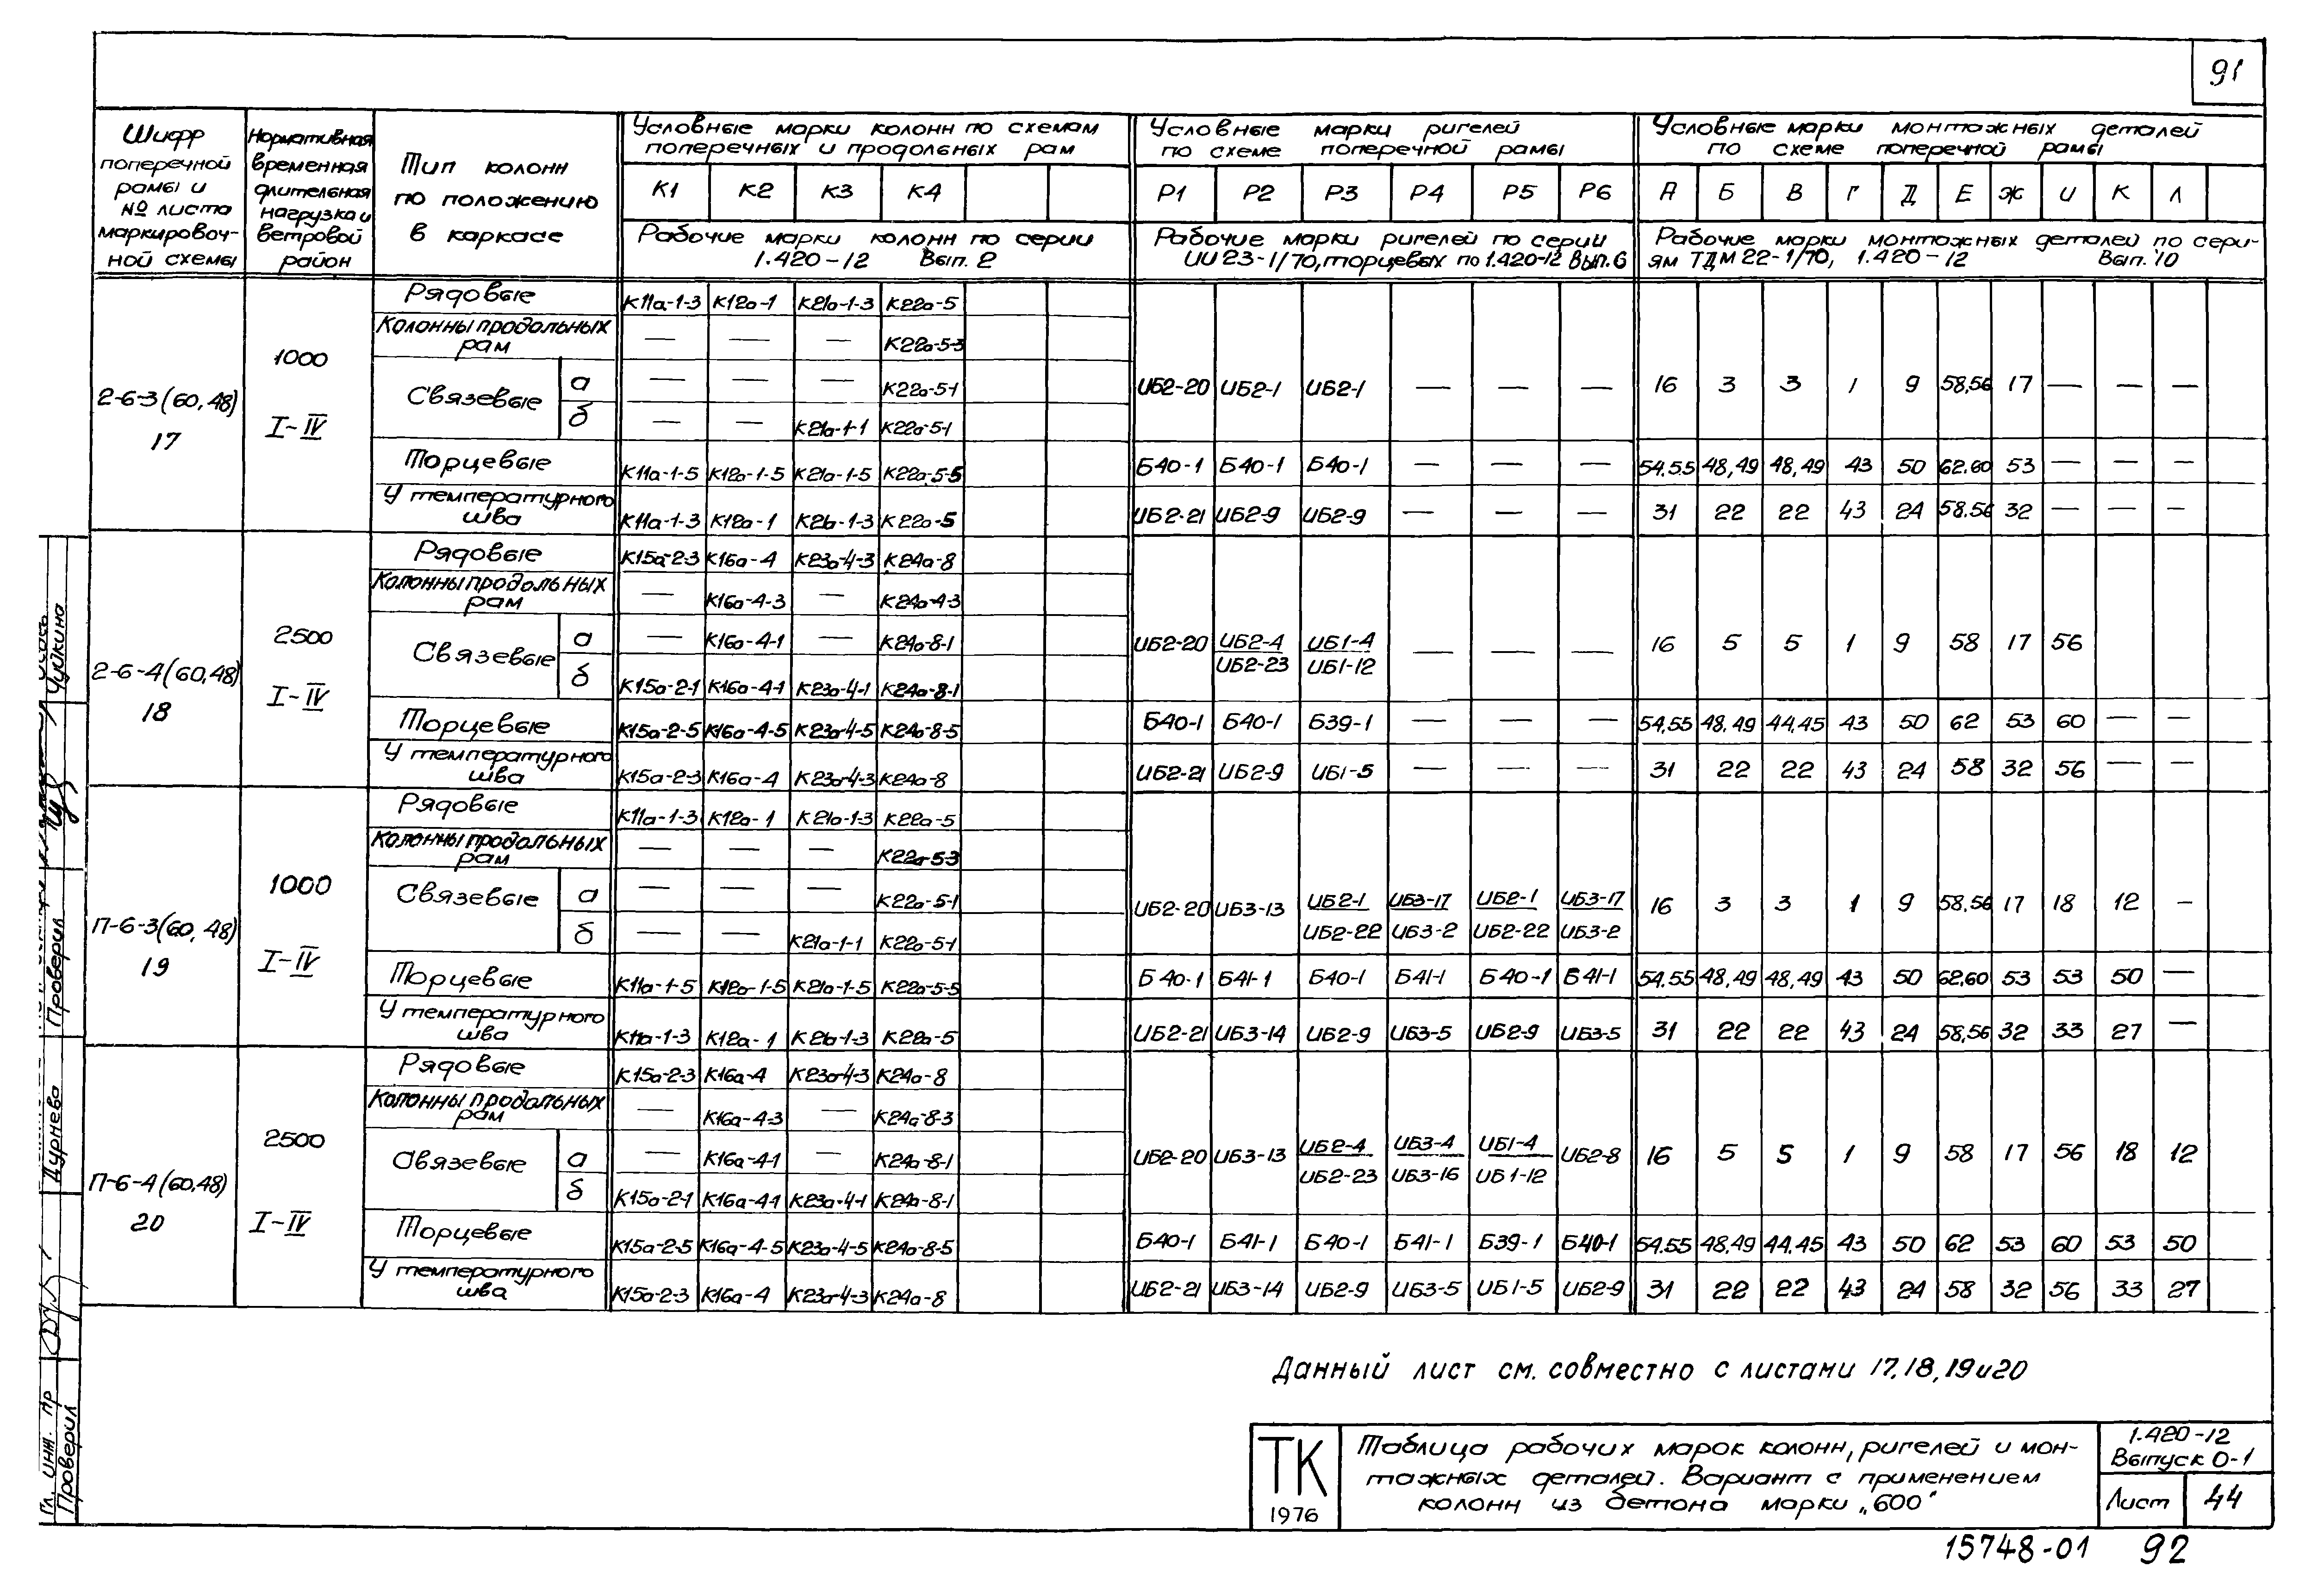 91
Шифр поперечной рамы и № листа маркировочной схемы
Нормативная временная длительная нагрузка и ветровой район
Тип колонн по положению в каркасе
Условные марки колонн по схемам поперечных и продольных рам
Условные марки ригелей по схеме поперечной рамы
Условные марки монтажных деталей по схеме поперечной рамы
К1 К2 К3 К4 Р1 Р2 Р3 Р4 Р5 Р6 А Б В Г Д Е Ж И К Л
Рабочие марки колонн по серии 1.420-12 Вып. 2
Рабочие марки ригелей по серии ИИ23-1/70, торцевых по 1.420-12 Вып. 6
Рабочие марки монтажных деталей по сериям ТДМ22-1/70, 1.420-12 Вып. 10
2-6-3 (60,48) 17
1000 I-IV
Рядовые К11а-1-3 К12а-1 К21а-1-3 К22а-5
Колонны продольных рам — — — К22а-5-3
Связевые а — — — К22а-5-1
б — — К21а-1-1 К22а-5-1
ИБ2-20 ИБ2-1 ИБ2-1 — — — 16 3 3 1 9 58,56 17 — — —
Торцевые К11а-1-5 К12а-1-5 К21а-1-5 К22а-5-5 Б40-1 Б40-1 Б40-1 — — — 54,55 48,49 48,49 43 50 62.60 53 — — —
У температурного шва К11а-1-3 К12а-1 К21а-1-3 К22а-5 ИБ2-21 ИБ2-9 ИБ2-9 — — — 31 22 22 43 24 58.56 32 — — —
2-6-4 (60,48) 18
2500 I-IV
Рядовые К15а-2-3 К16а-4 К23а-4-3 К24а-8
Колонны продольных рам — К16а-4-3 — К24а-4-3
Связевые а — К16а-4-1 — К24а-8-1
б К15а-2-1 К16а-4-1 К23а-4-1 К24а-8-1
ИБ2-20 ИБ2-4 ИБ1-4 — — — 16 5 5 1 9 58 17 56
ИБ2-23 ИБ1-12
Торцевые К15а-2-5 К16а-4-5 К23а-4-5 К24а-8-5 Б40-1 Б40-1 Б39-1 — — — 54,55 48,49 44,45 43 50 62 53 60 — —
У температурного шва К15а-2-3 К16а-4 К23а-4-3 К24а-8 ИБ2-21 ИБ2-9 ИБ1-5 — — — 31 22 22 43 24 58 32 56 — —
П-6-3 (60,48) 19
1000 I-IV
Рядовые К11а-1-3 К12а-1 К21а-1-3 К22а-5
Колонны продольных рам — — — К22а-5-3
Связевые а — — — К22а-5-1
б — — К21а-1-1 К22а-5-1
ИБ2-20 ИБ3-13 ИБ2-1 ИБ3-17 ИБ2-1 ИБ3-17 16 3 3 1 9 58,56 17 18 12 —
ИБ2-22 ИБ3-2 ИБ2-22 ИБ3-2
Торцевые К11а-1-5 К12а-1-5 К21а-1-5 К22а-5-5 Б40-1 Б41-1 Б40-1 Б41-1 Б40-1 Б41-1 54,55 48,49 48,49 43 50 62,60 53 53 50 —
У температурного шва К11а-1-3 К12а-1 К21а-1-3 К22а-5 ИБ2-21 ИБ3-14 ИБ2-9 ИБ3-5 ИБ2-9 ИБ3-5 31 22 22 43 24 58,56 32 33 27 —
П-6-4 (60,48) 20
2500 I-IV
Рядовые К15а-2-3 К16а-4 К23а-4-3 К24а-8
Колонны продольных рам — К16а-4-3 — К24а-8-3
Связевые а — К16а-4-1 — К24а-8-1
б К15а-2-1 К16а-4-1 К23а-4-1 К24а-8-1
ИБ2-20 ИБ3-13 ИБ2-4 ИБ3-4 ИБ1-4 ИБ2-8 16 5 5 1 9 58 17 56 18 12
ИБ2-23 ИБ3-16 ИБ1-12
Торцевые К15а-2-5 К16а-4-5 К23а-4-5 К24а-8-5 Б40-1 Б41-1 Б40-1 Б41-1 Б39-1 Б40-1 54.55 48,49 44,45 43 50 62 53 60 53 50
У температурного шва К15а-2-3 К16а-4 К23а-4-3 К24а-8 ИБ2-21 ИБ3-14 ИБ2-9 ИБ3-5 ИБ1-5 ИБ2-9 31 22 22 43 24 58 32 56 33 27
Данный лист см. совместно с листами 17,18,19и20
ТК
1976
Таблица рабочих марок колонн, ригелей и мон-
тажных деталей. Вариант с применением
колонн из бетона марки „600"
1.420-12
Выпуск 0-1
Лист 44
15748-01 92
Чуйкина
Проверил
Дурнева
Гл. инж. пр
Проверил